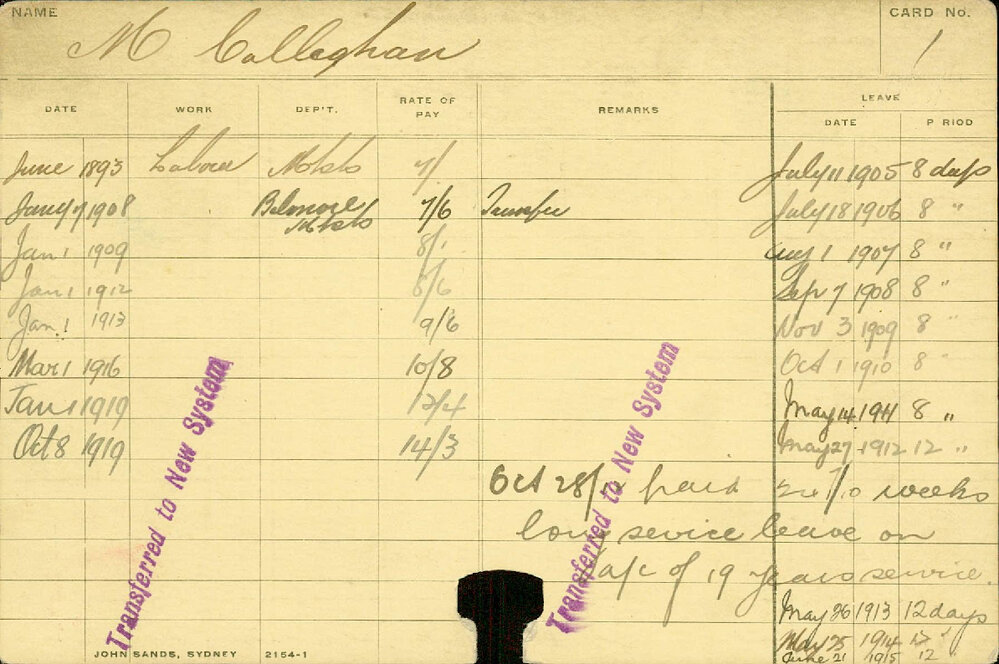 NAME
M Callaghan
CARD No.
1
DATE WORK DEP'T. RATE OF PAY REMARKS LEAVE
DATE P RIOD
June 1893 Labour 7/ July 11 1905 8 days
Jany 7 1908 Belmore 7/6 Transfer July 18 1906 8 "
Jan 1 1909 8/ Aug 1 1907 8 "
Jan 1 1912 8/6 Sep 7 1908 8 "
Jan. 1 1913 9/6 Nov 3 1909 8 "
Mar 1 1916 10/8 Oct 1 1910 8 "
Jan 1 1919 12/4 May 14. 1911 8 "
Oct 8 1919 14/3 May 27. 1912 12 "
Oct 28/ paid weeks
long sevice leave on
a/c of 19 years service.
May 26 1913 12 days
May 25 1914 12 "
June 21 1915 12
Transferred to New System
Transferred to New System
JOHN SANDS, SYDNEY 2154-1